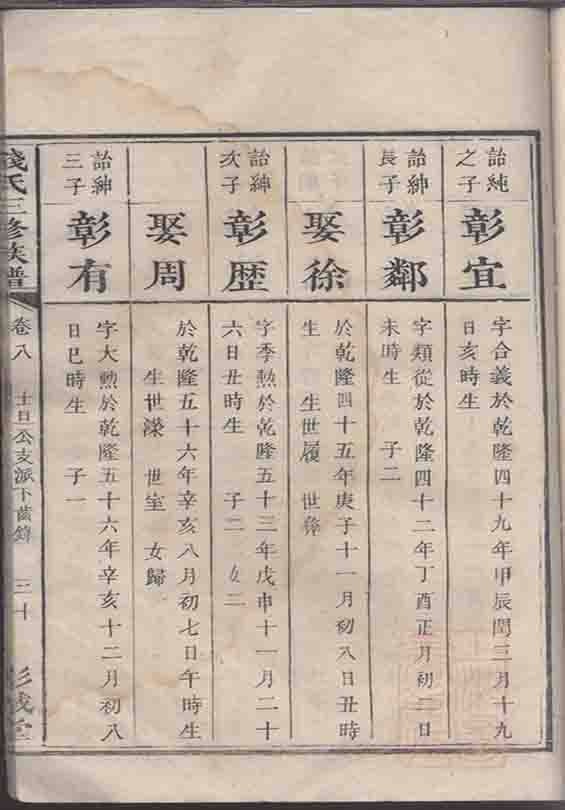 詒純
之子
彰宜
字合義於乾隆四十九年甲辰閏三月十九
日亥時生
詒紳
長子
彰鄰
字類從於乾隆四十二年丁酉正月初二日
未時生 子二
娶徐
於乾隆四十五年庚子十一月初八日丑時
生 生世履 世彝
詒紳
次子
彰歷
字季勲於乾隆五十三年戊申十一月二十
六日丑時生 子二 女二
娶周
於乾隆五十六年辛亥八月初七日午時生
生世濚 世室 女歸
詒紳
三子
彰有
字大勲於乾隆五十六年辛亥十二月初八
日巳時生 子一
錢氏三修族譜
卷八
公支派下齒錄
三十
彭城堂